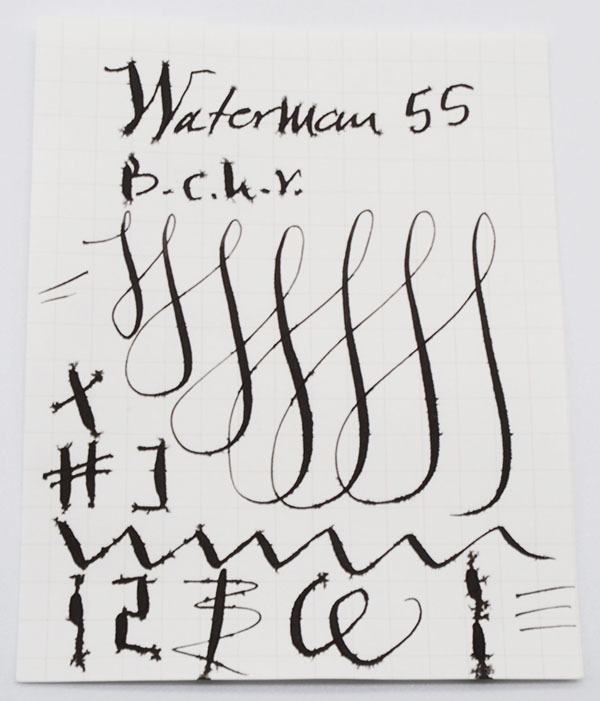 Waterman 55
B.c.h.r.
X
# 3
1 2 $ @ !